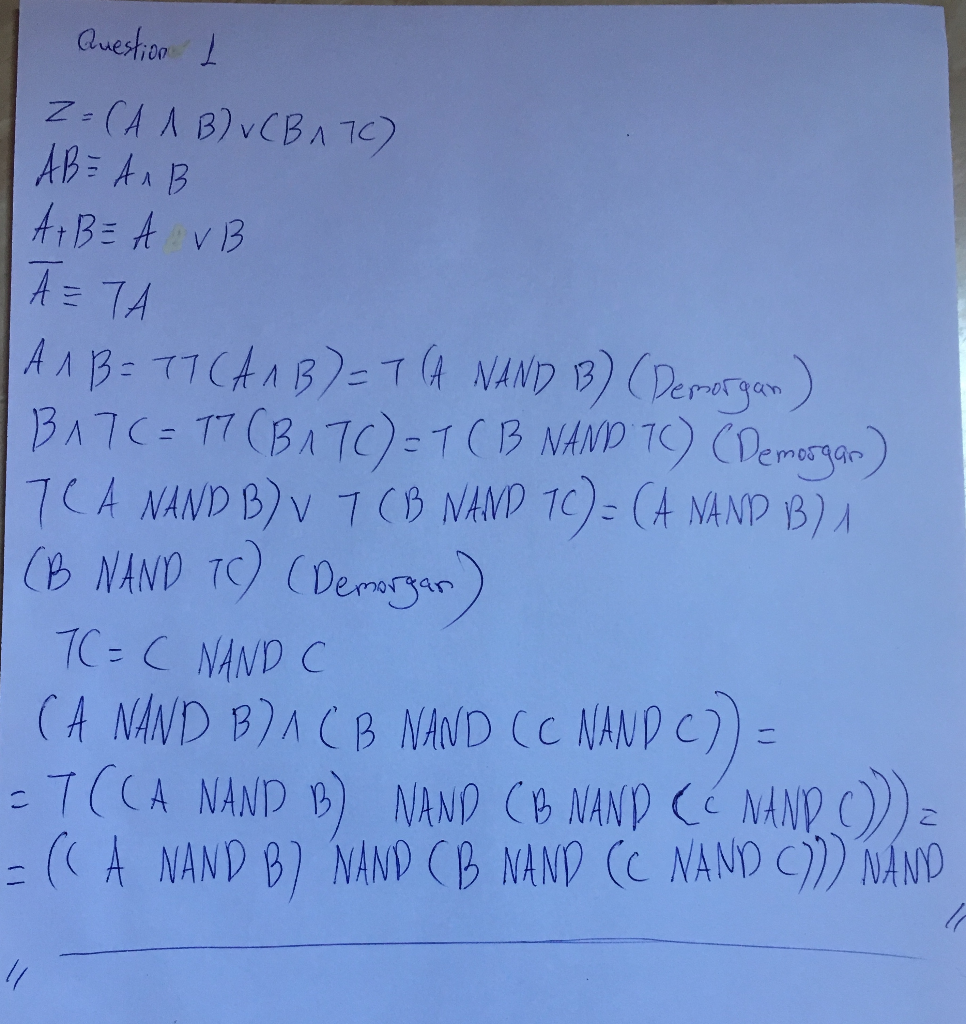 Question 1
Z = (A ∧ B) ∨ (B ∧ ¬C)
AB ≡ A ∧ B
A+B ≡ A ∨ B
A̅ ≡ ¬A
A ∧ B = ¬¬(A ∧ B) = ¬(A NAND B) (Demorgan)
B ∧ ¬C = ¬¬(B ∧ ¬C) = ¬(B NAND ¬C) (Demorgan)
¬(A NAND B) ∨ ¬(B NAND ¬C) = (A NAND B) ∧
(B NAND ¬C) (Demorgan)
¬C = C NAND C
(A NAND B) ∧ (B NAND (C NAND C)) =
= ¬((A NAND B) NAND (B NAND (C NAND C))) =
= ((A NAND B) NAND (B NAND (C NAND C))) NAND
//
//